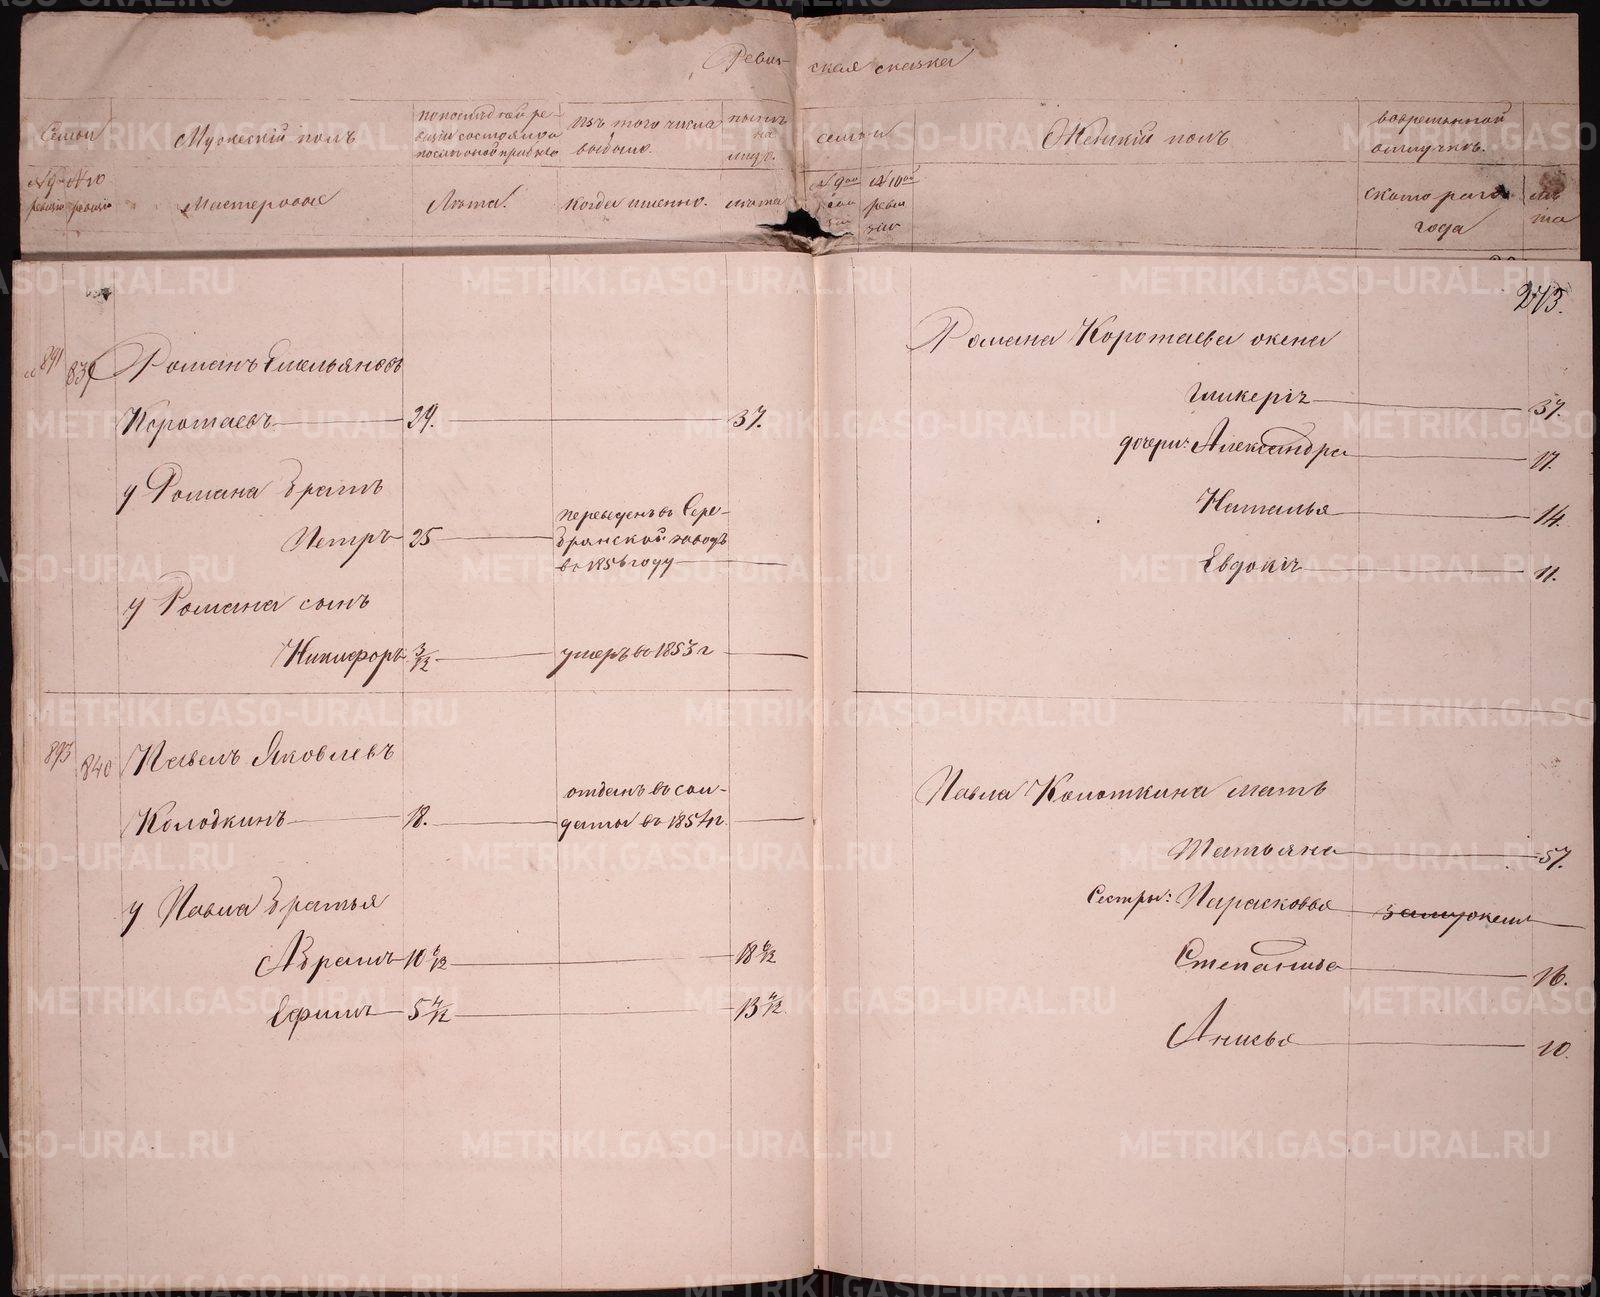 Ревизская сказка
Семьи
Мужескій полъ
по последней ревизіи состояло и после оной прибыло
изъ того числа выбыло.
ныне на лицо.
семьи
Женскій полъ
во временной отлучкѣ.
№ 9й ревизіи
№ 10 ревизіи
Мастеровые
Лѣта.
Когда именно.
лѣта
№ 9ой
№ 10ой ревизіи
съ котораго года
лѣта
273.
891
839
Романъ Емельяновъ
Коротаевъ 29. 37.
у Романа братъ
Петръ 25 переведенъ въ Сере-
брянской заводъ
въ 1856 году
у Романа сынъ
Никифоръ 3/12 умеръ въ 1853 г
893
840
Павелъ Яковлевъ
Колодкинъ 18. отданъ въ сол-
даты въ 1854 г.
у Павла братья
Абрамъ 10 6/12 18 6/12
Ефимъ 5 4/12 13 4/12
Романа Коротаева жена
Гликерія 37.
дочери: Александра 17.
Наталья 14.
Евдокія 11.
Павла Колоткина мать
Татьяна 57.
Сестры: Парасковья замужемъ
Степанида 16.
Анисья 10.
METRIKI.GASO-URAL.RU